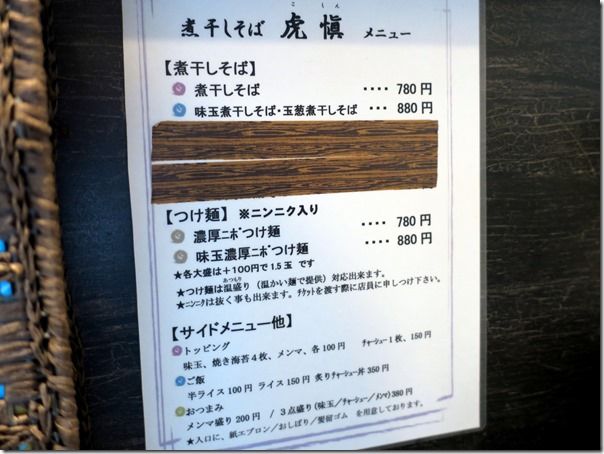 こしん
煮干しそば 虎愼 メニュー
【煮干しそば】
煮干しそば ···· 780円
味玉煮干しそば・玉葱煮干しそば ··· 880円
【つけ麺】 ※ニンニク入り
濃厚ﾆﾎﾞつけ麺 ···· 780円
味玉濃厚ﾆﾎﾞつけ麺 ···· 880円
★各大盛は＋100円で1.5玉 です
あつもり
★つけ麺は温盛り（温かい麺で提供）対応出来ます。
★ﾆﾝﾆｸは抜く事も出来ます。ﾁｹｯﾄを渡す際に店員に申しつけ下さい。
【サイドメニュー他】
トッピング
味玉、焼き海苔4枚、メンマ、各100円 ﾁｬｰｼｭｰ1枚、150円
ご飯
半ライス100円 ライス150円 炙りﾁｬｰｼｭｰ丼350円
おつまみ
メンマ盛り200円 / 3点盛り(味玉／ﾁｬｰｼｭｰ／ﾒﾝﾏ)380円
★入口に、紙エプロン／おしぼり／髪留ゴム を用意しております。